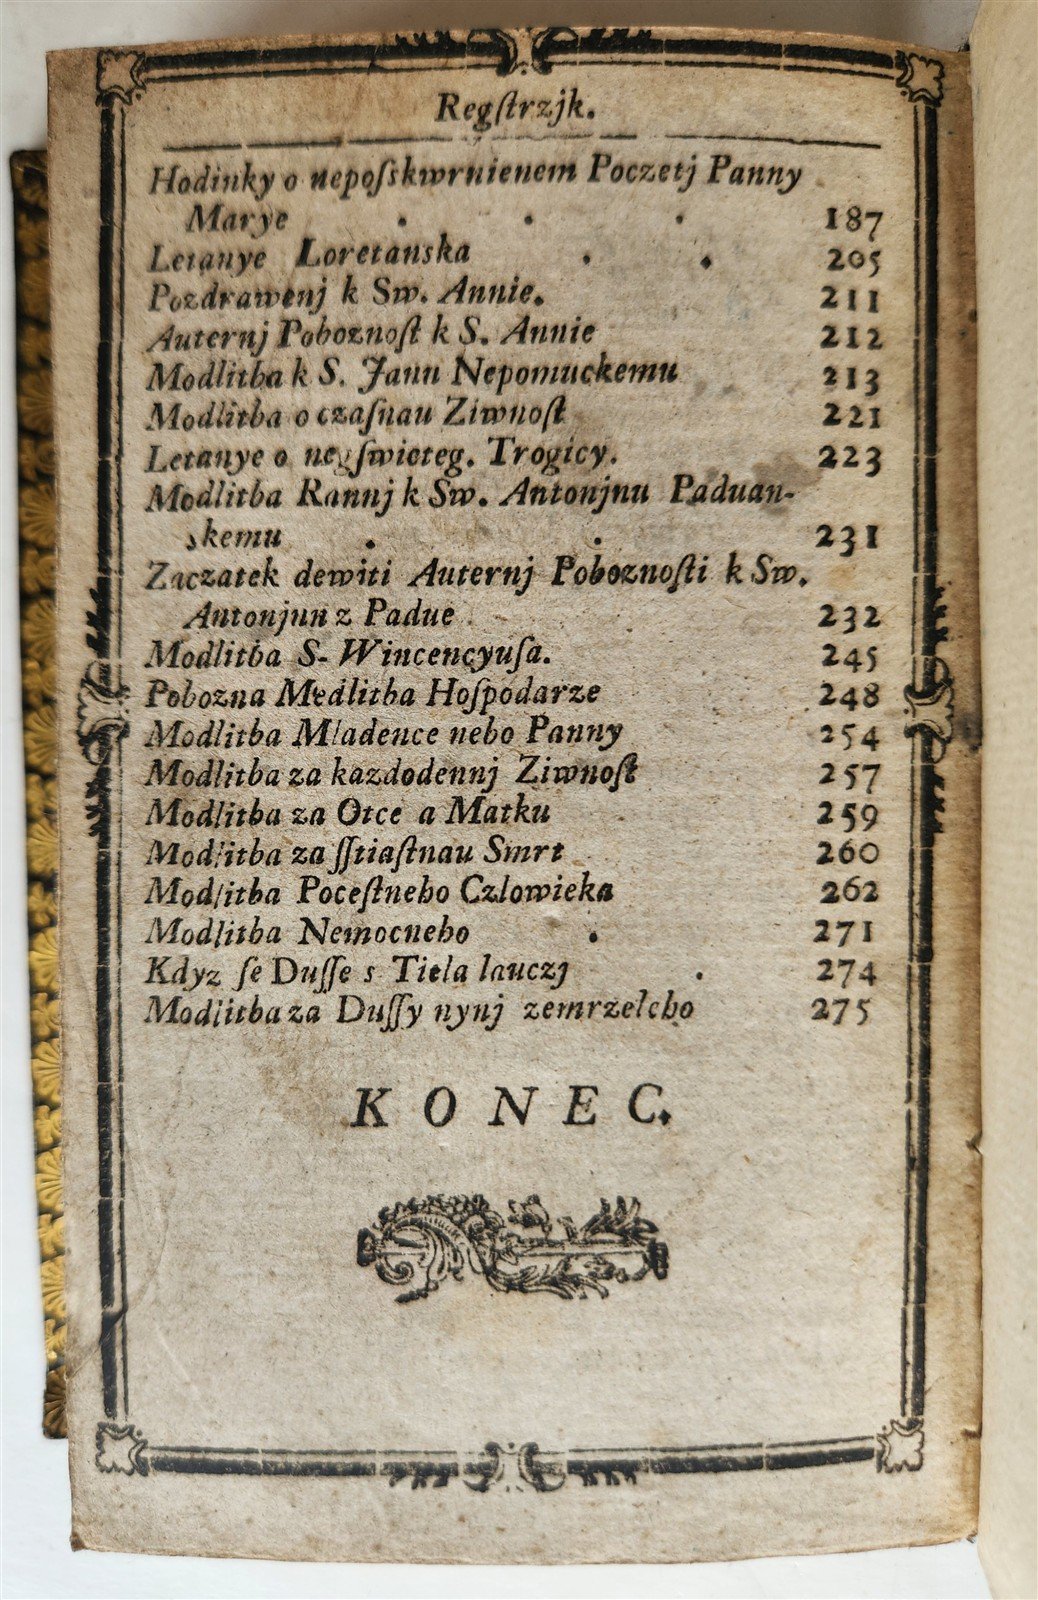 Regſtrzjk.
Hodinky o nepoſskwrnienem Poczetj Panny
Marye . . . 187
Letanye Loretanska . . 205
Pozdrawenj k Sw. Annie. 211
Auternj Poboznoſt k S. Annie 212
Modlitba k S. Janu Nepomuckemu 213
Modlitba o czaſnau Ziwnoſt 221
Letanye o negſwieteg. Trogicy. 223
Modlitba Rannj k Sw. Antonjnu Paduan-
skemu . . 231
Zaczatek dewiti Auternj Poboznoſti k Sw.
Antonjnn z Padue 232
Modlitba S- Wincencyuſa. 245
Pobozna Medlitba Hoſpodarze 248
Modlitba Mladence nebo Panny 254
Modlitba za kazdodennj Ziwnoſt 257
Modlitba za Otce a Matku 259
Modlitba za ſſtiaſtnau Smrt 260
Modlitba Poceſtneho Czlowieka 262
Modlitba Nemocneho . 271
Kdyz ſe Duſſe s Tiela lauczj . 274
Modlitba za Duſſy nynj zemrzeleho 275
KONEC.